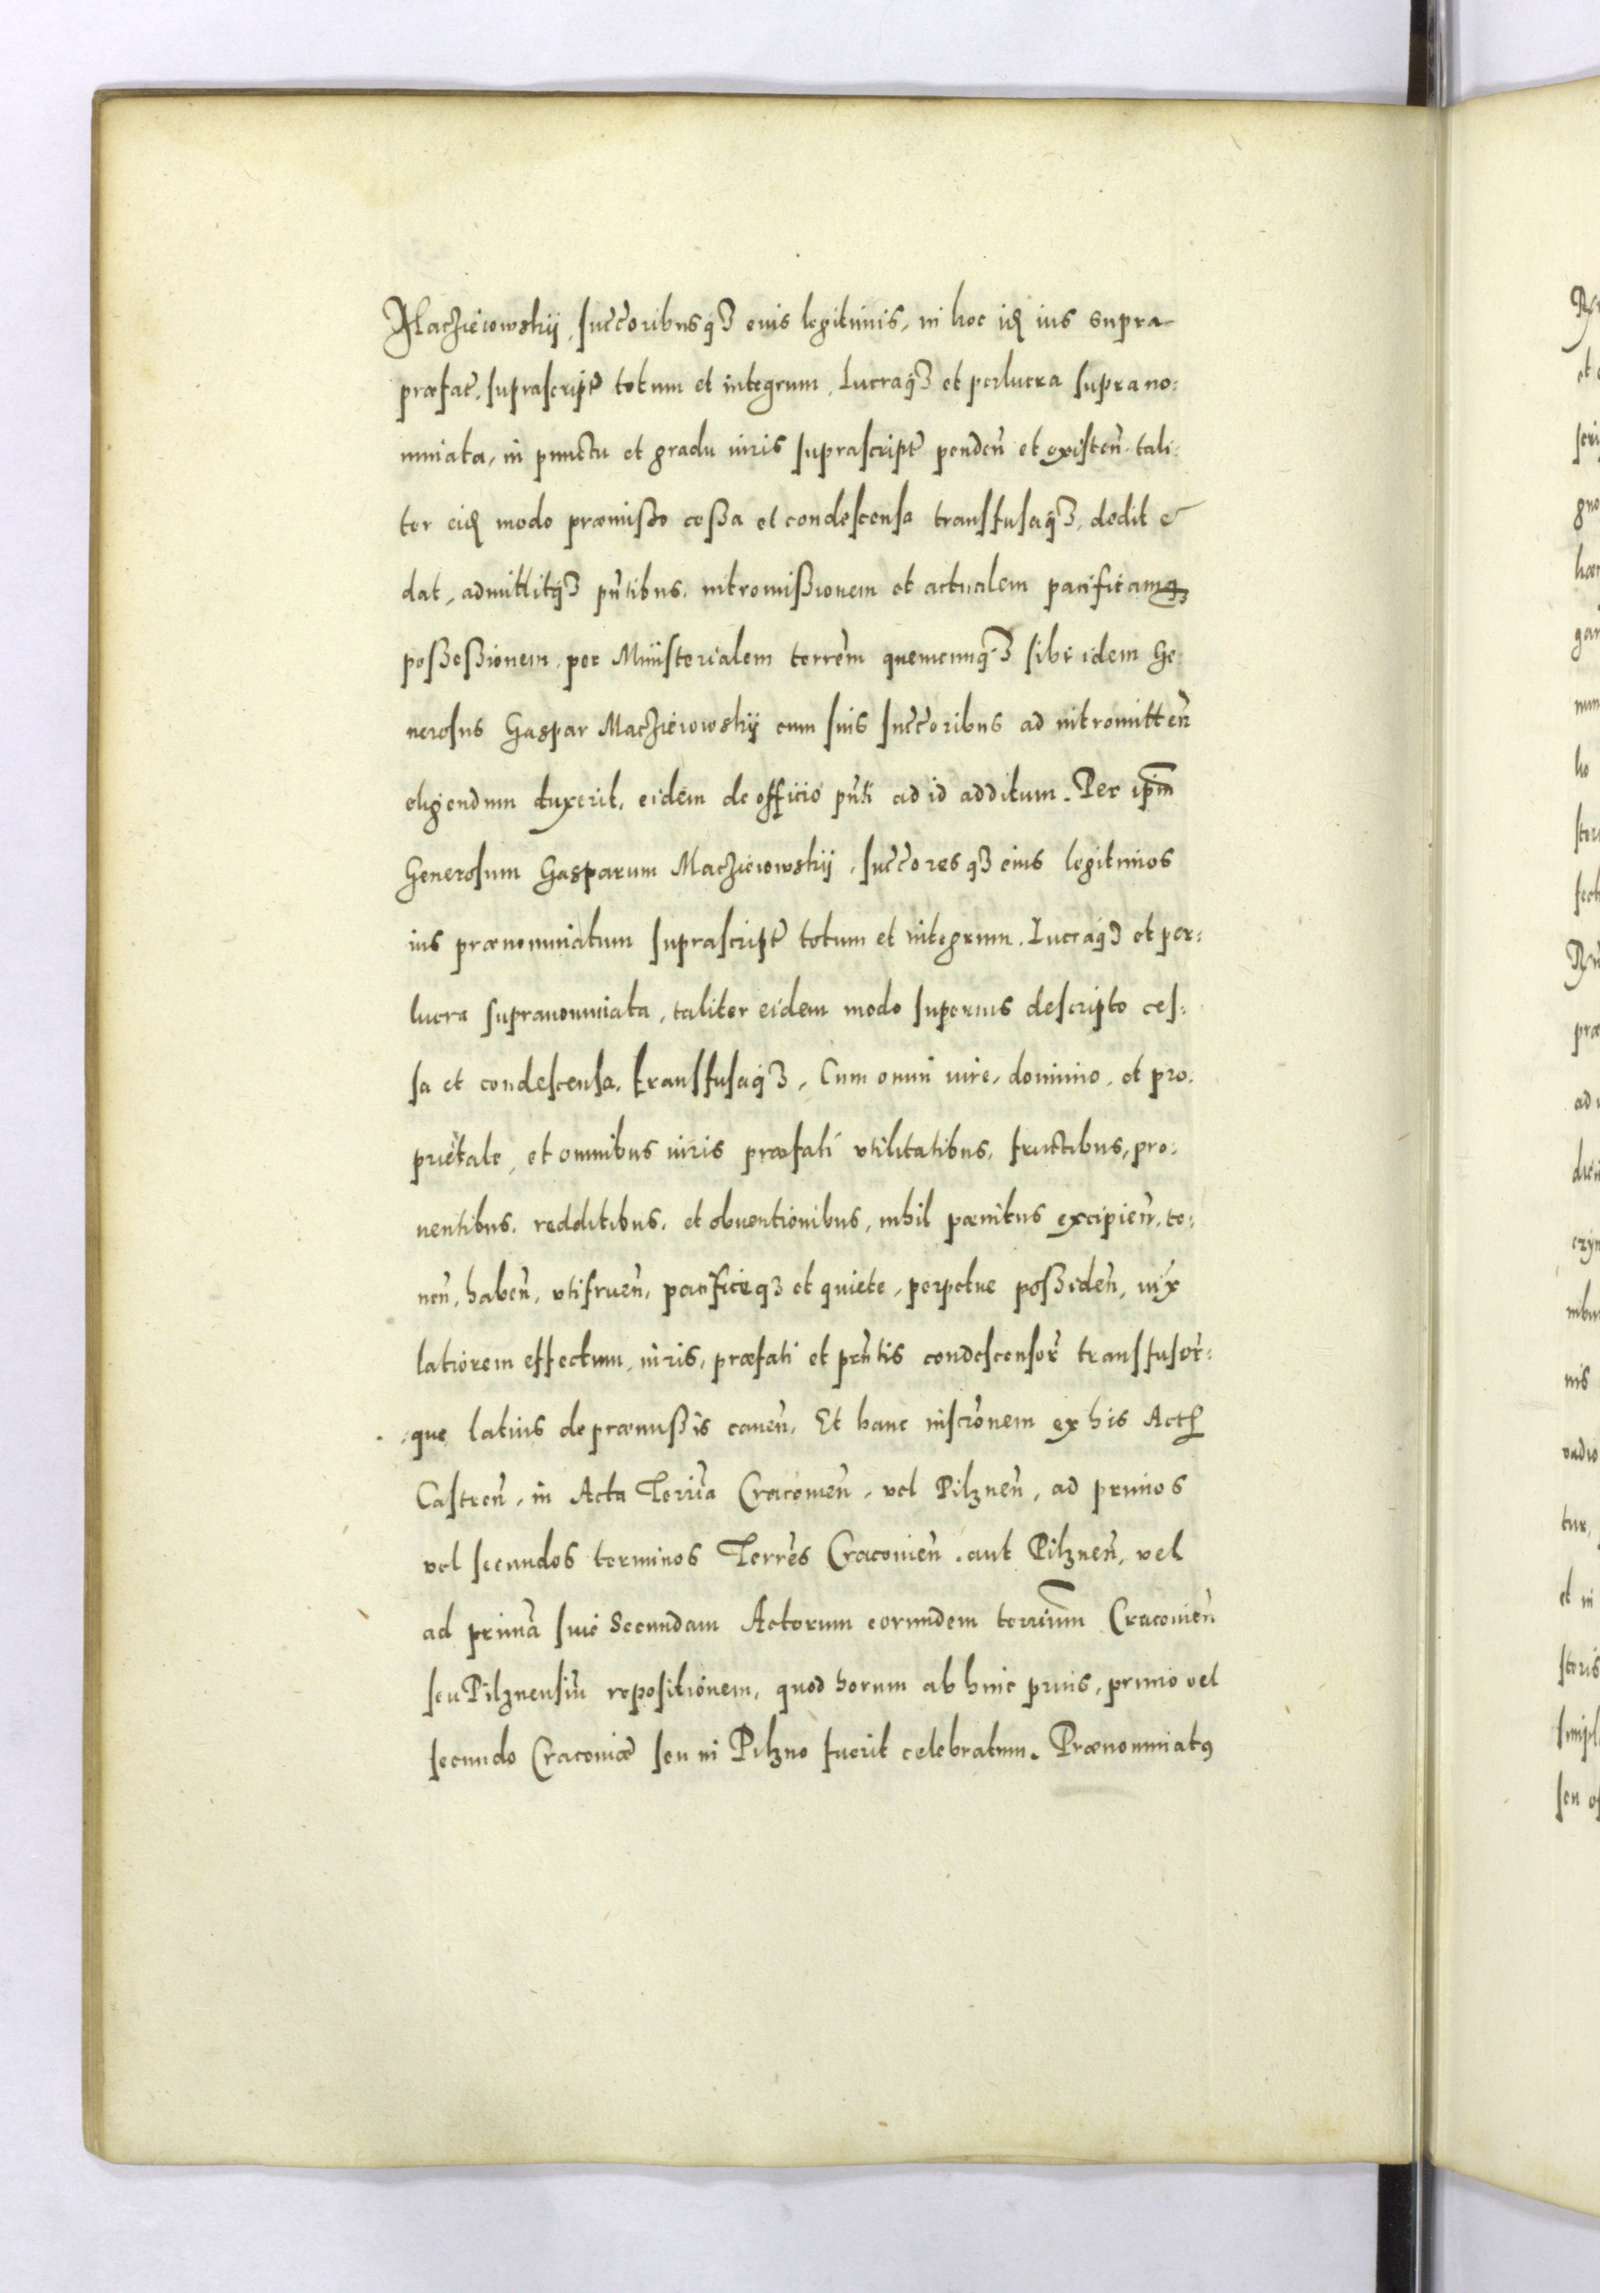 Maczieiowskij, succoribusq3 eius legitimis, in hoc id ius supra
præfat, suprascript totum et integrum, Lucraq3 et perlucra suprano:
minata, in punctu et gradu iuris suprascript penden et existen tali:
ter eid modo præmisso cessa et condescensa transfusaq3, dedit et
dat, admittitq3 pntibus, intromissionem et actualem pacificamq3
possessionem, per Ministerialem terrem quemcunq3 sibi idem Ge
nerosus Gaspar Maczieiowskij cum suis succoribus ad intromitten
eligendum duxerit, eidem de officio pnti ad id additum. Per ipm
Generosum Gasparum Maczieiowskij, succoresq3 eius legitimos
ius prænominatum suprascript totum et integrum, Lucraq3 et per:
lucra supranominata, taliter eidem modo superius descripto ces:
sa et condescensa, transfusaq3, Cum omni iure, dominio, et pro:
prietate, et omnibus iuris præfati vtilitatibus, fructibus, pro:
uentibus, redditibus, et obuentionibus, nihil pænitus excipien, te:
nen, haben, vtifruen, pacificeq3 et quiete, perpetue possiden, iux
latiorem effectum, iuris, præfati et pntis condescensor transfusor:
que latius de præmissis cauen, Et hanc inscronem ex his Act
Castren, in Acta Terria Cracouien, vel Pilznen, ad primos
vel secundos terminos Terres Cracouien, aut Pilznen, vel
ad prima siue Secundam Actorum eorundem terrium Cracouien
seu Pilznensiu repositionem, quod horum ab hinc prius, primo vel
secundo Cracouiæ seu in Pilzno fuerit celebratum. Prænominatus